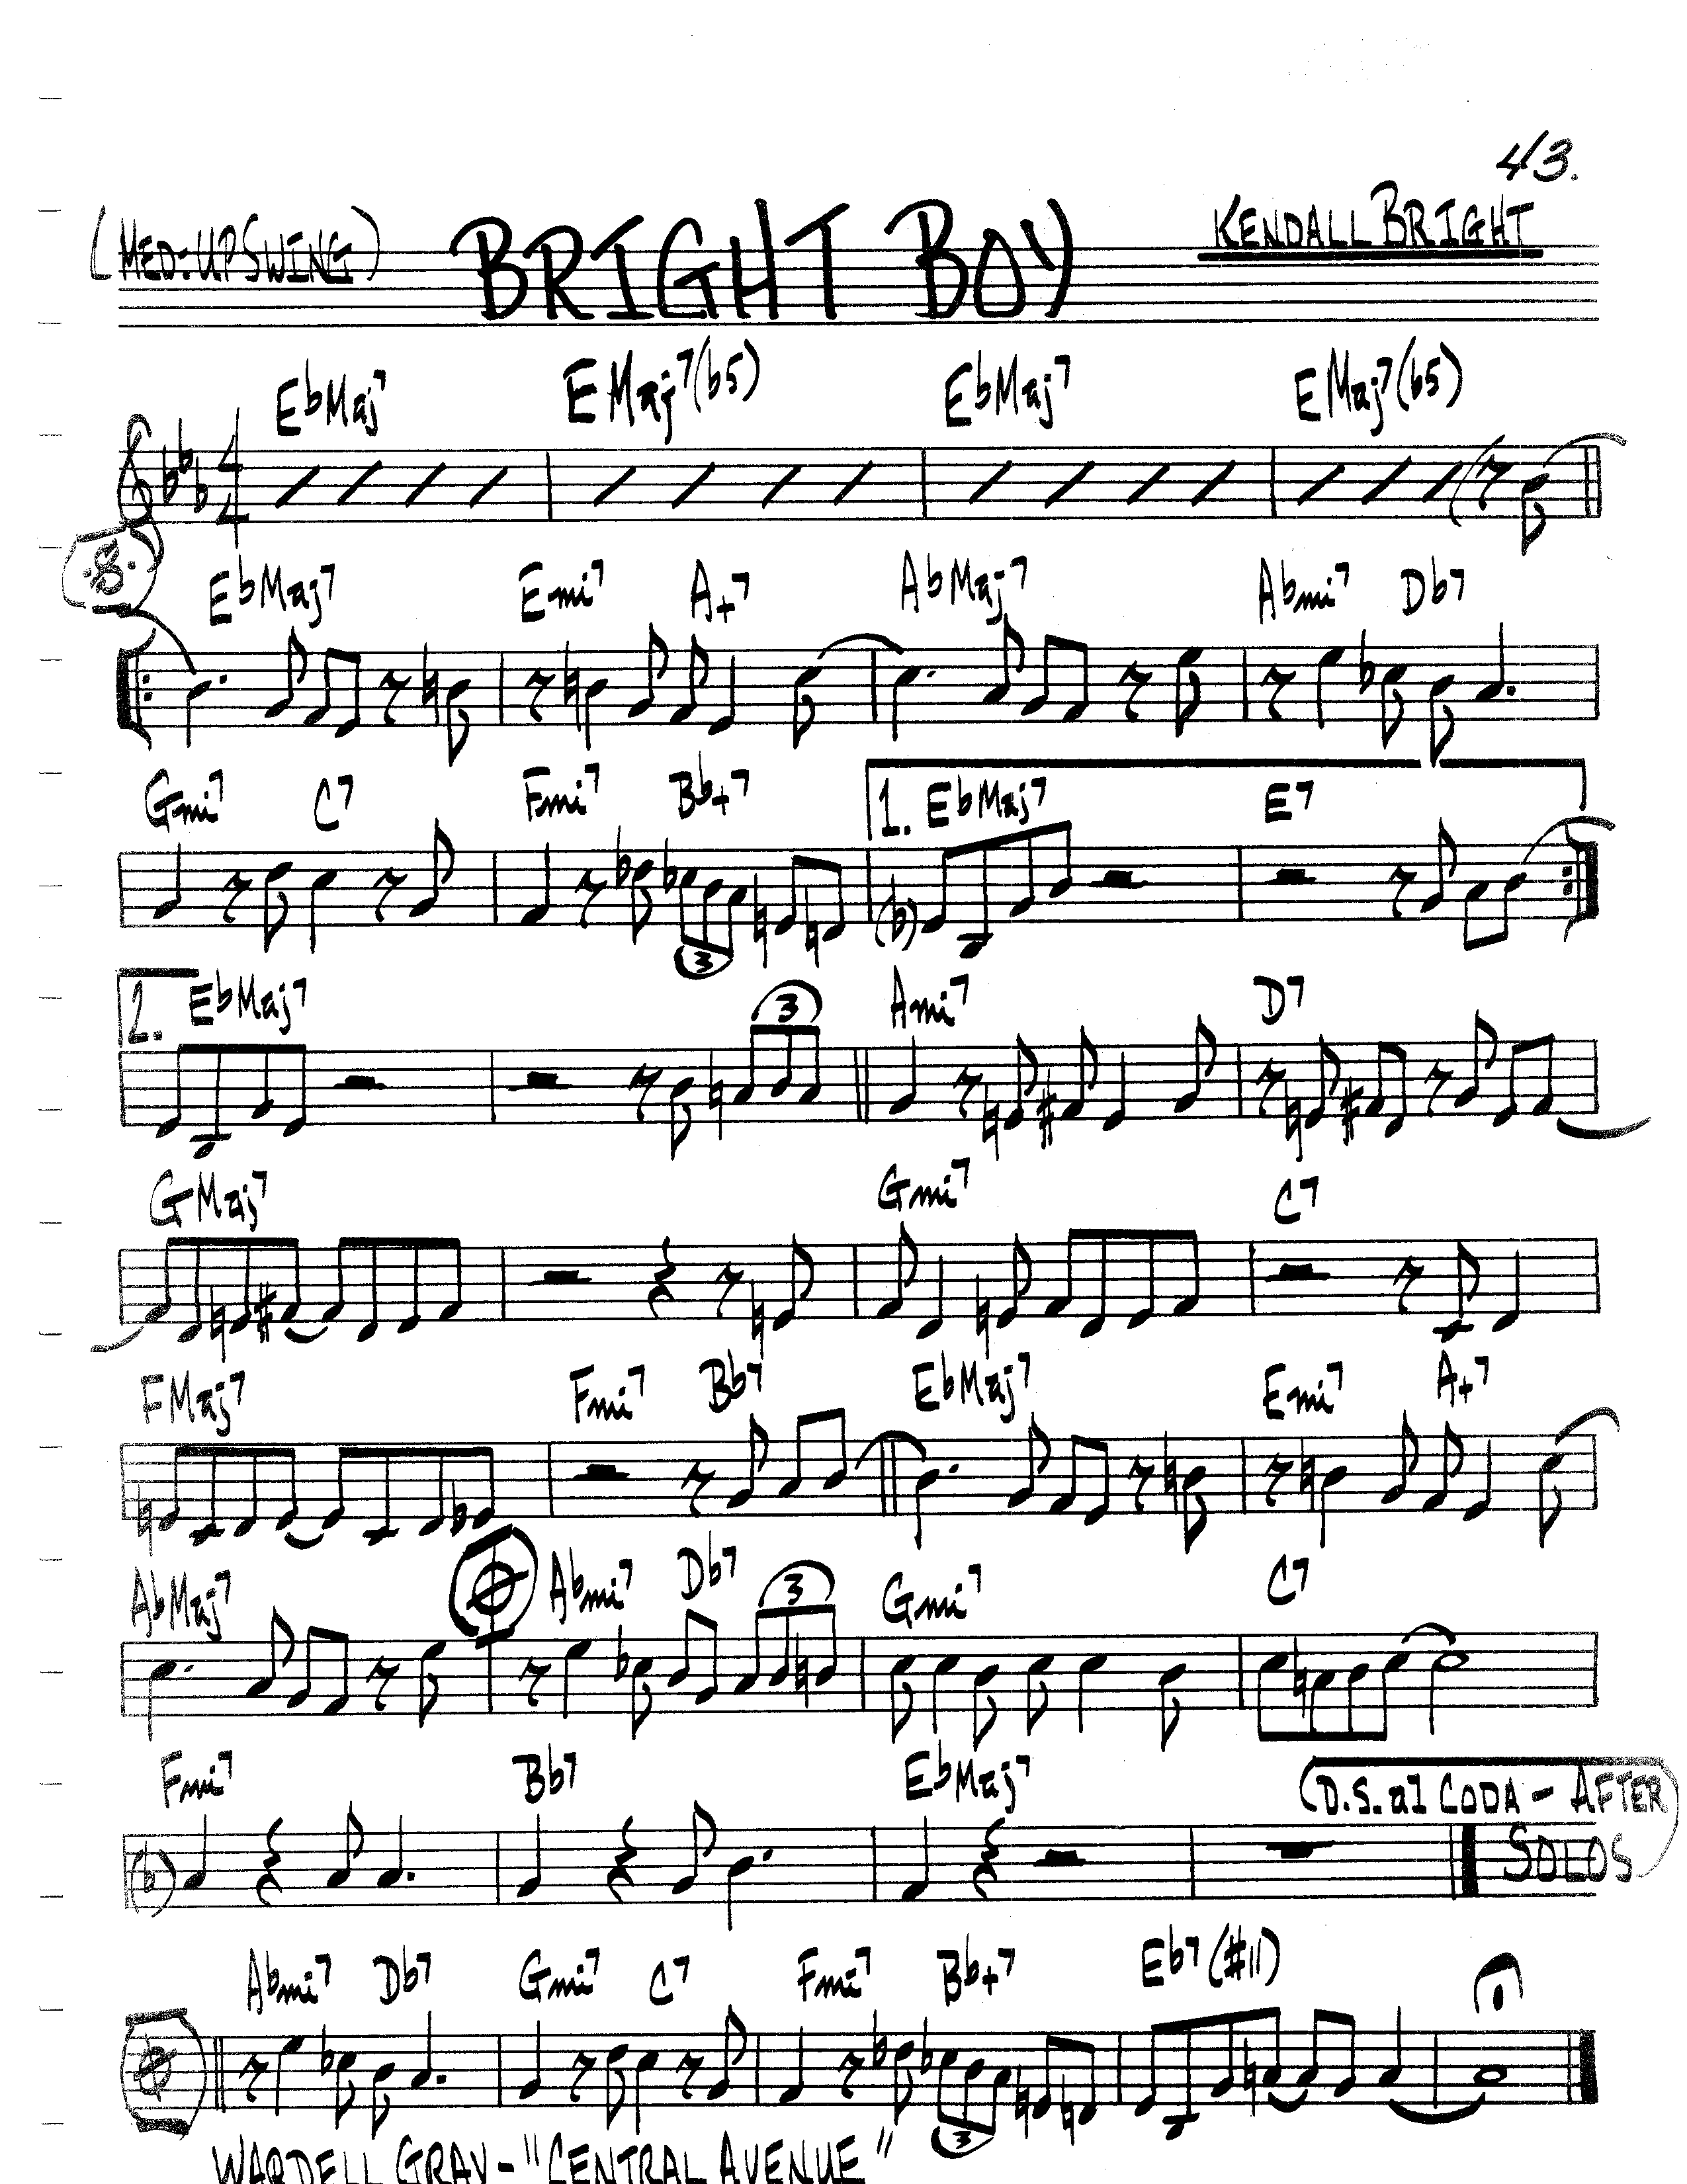 43.
(MED: UP SWING) BRIGHT BOY KENDALL BRIGHT
EbMaj7 EMaj7(b5) EbMaj7 EMaj7(b5)
4
4
EbMaj7 Emi7 A+7 AbMaj7 Abmi7 Db7
Gmi7 C7 Fmi7 Bb+7 1. EbMaj7 E7
3
2. EbMaj7 3 Ami7 D7
GMaj7 Gmi7 C7
FMaj7 Fmi7 Bb7 EbMaj7 Emi7 A+7
AbMaj7 Abmi7 Db7 3 Gmi7 C7
Fmi7 Bb7 EbMaj7 (D.S. al CODA - AFTER
SOLOS)
Abmi7 Db7 Gmi7 C7 Fmi7 Bb+7 Eb7(#11)
3
WARDELL GRAY - "CENTRAL AVENUE"